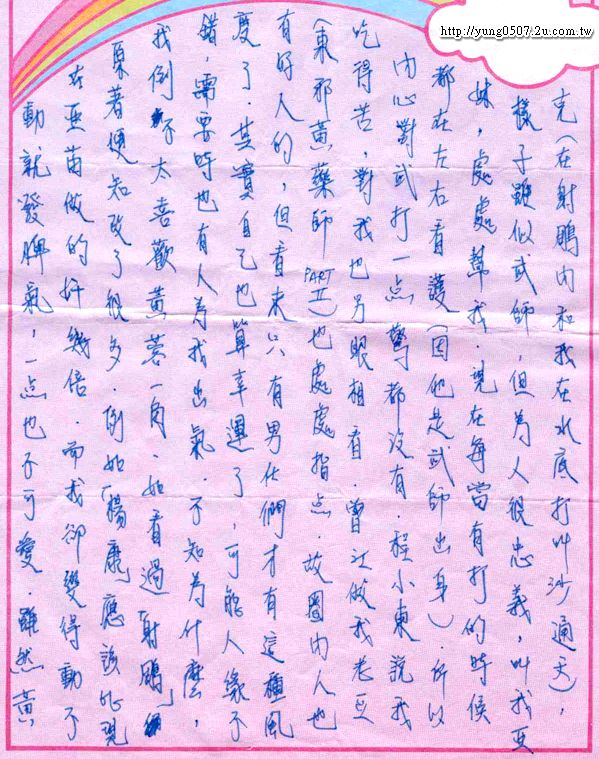 http://yung0507.2u.com.tw
克(在射鵰內和我在水底打叫沙通天),
樣子雖似武師,但為人很忠義,叫我亞
妹,處處幫我.現在每當有打的時候
都在左右看護(因他是武師出身).所以
內心對武打一点驚都沒有.程小東說我
吃得苦,對我也另眼相看.曾做我老豆
(東邪黃藥師PART II)也處處指点.故圈內人也
有好人的,但看來只有男仕們才有這種風
度了.其實自己也算幸運了,可能人緣不
錯,需要時也有人為我出氣.不知為什麼,
我倒不太喜歡黃蓉一角.如看過「射鵰」
原著便知改了很多.例如「楊康」應該比現
在亞苗做的奸幾倍.而我卻變得動不
動就發脾氣,一点也不可愛.雖然黃